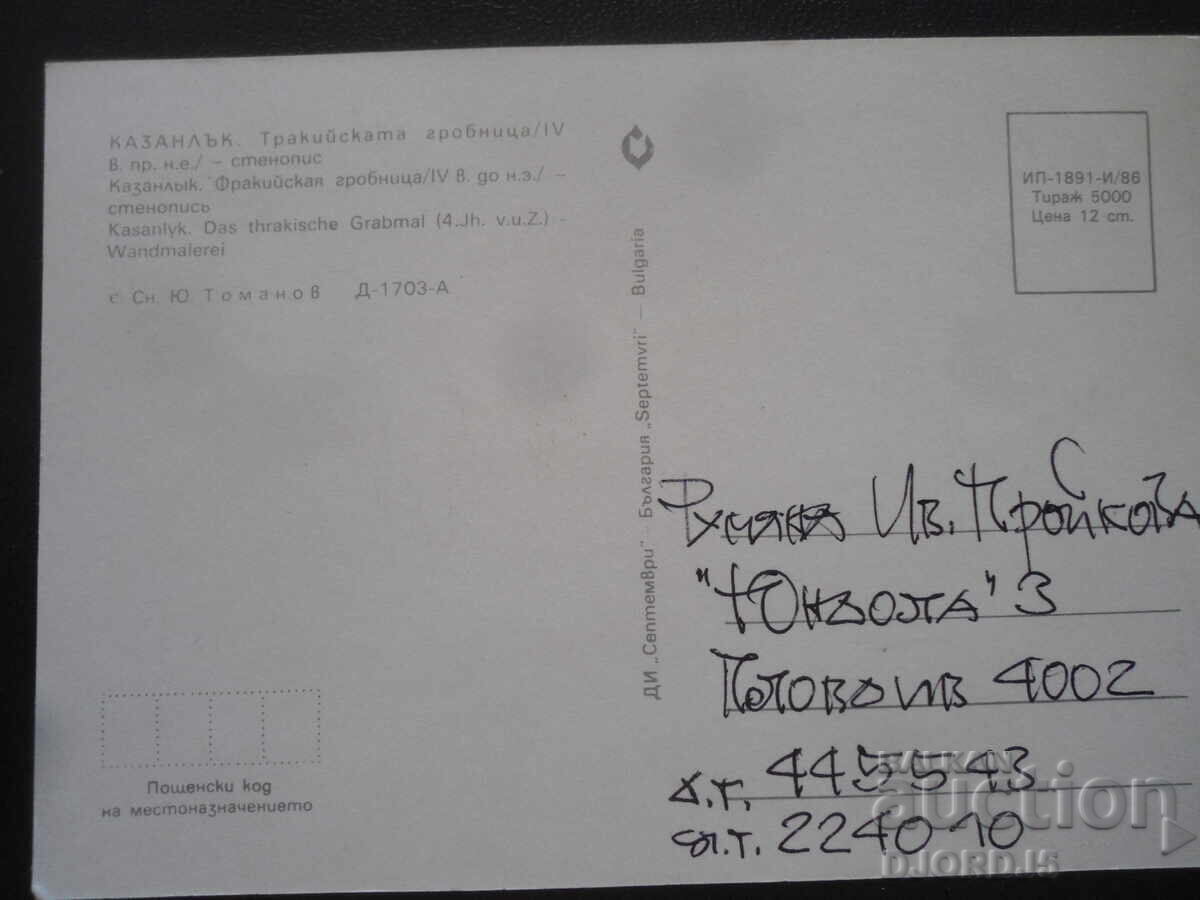 КАЗАНЛЪК. Тракийската гробница/IV
в. пр. н.е./ – стенопис
Казанлык. Фракийская гробница/IV в. до н.э./ –
стенопись
Kasanlyk. Das thrakische Grabmal (4.Jh. v.u.Z.) -
Wandmalerei
с Сн. Ю. Томанов Д-1703-А
Пощенски код
на местоназначението
ДИ „Септември" – България „Septemvri" — Bulgaria
ИП-1891-И/86
Тираж 5000
Цена 12 ст.
Румяна Ив. Пройкова
"Юндола" 3
Пловдив 4002
д.т. 445543
сл.т. 2240 10
BALKAN
auction
DJORD.15